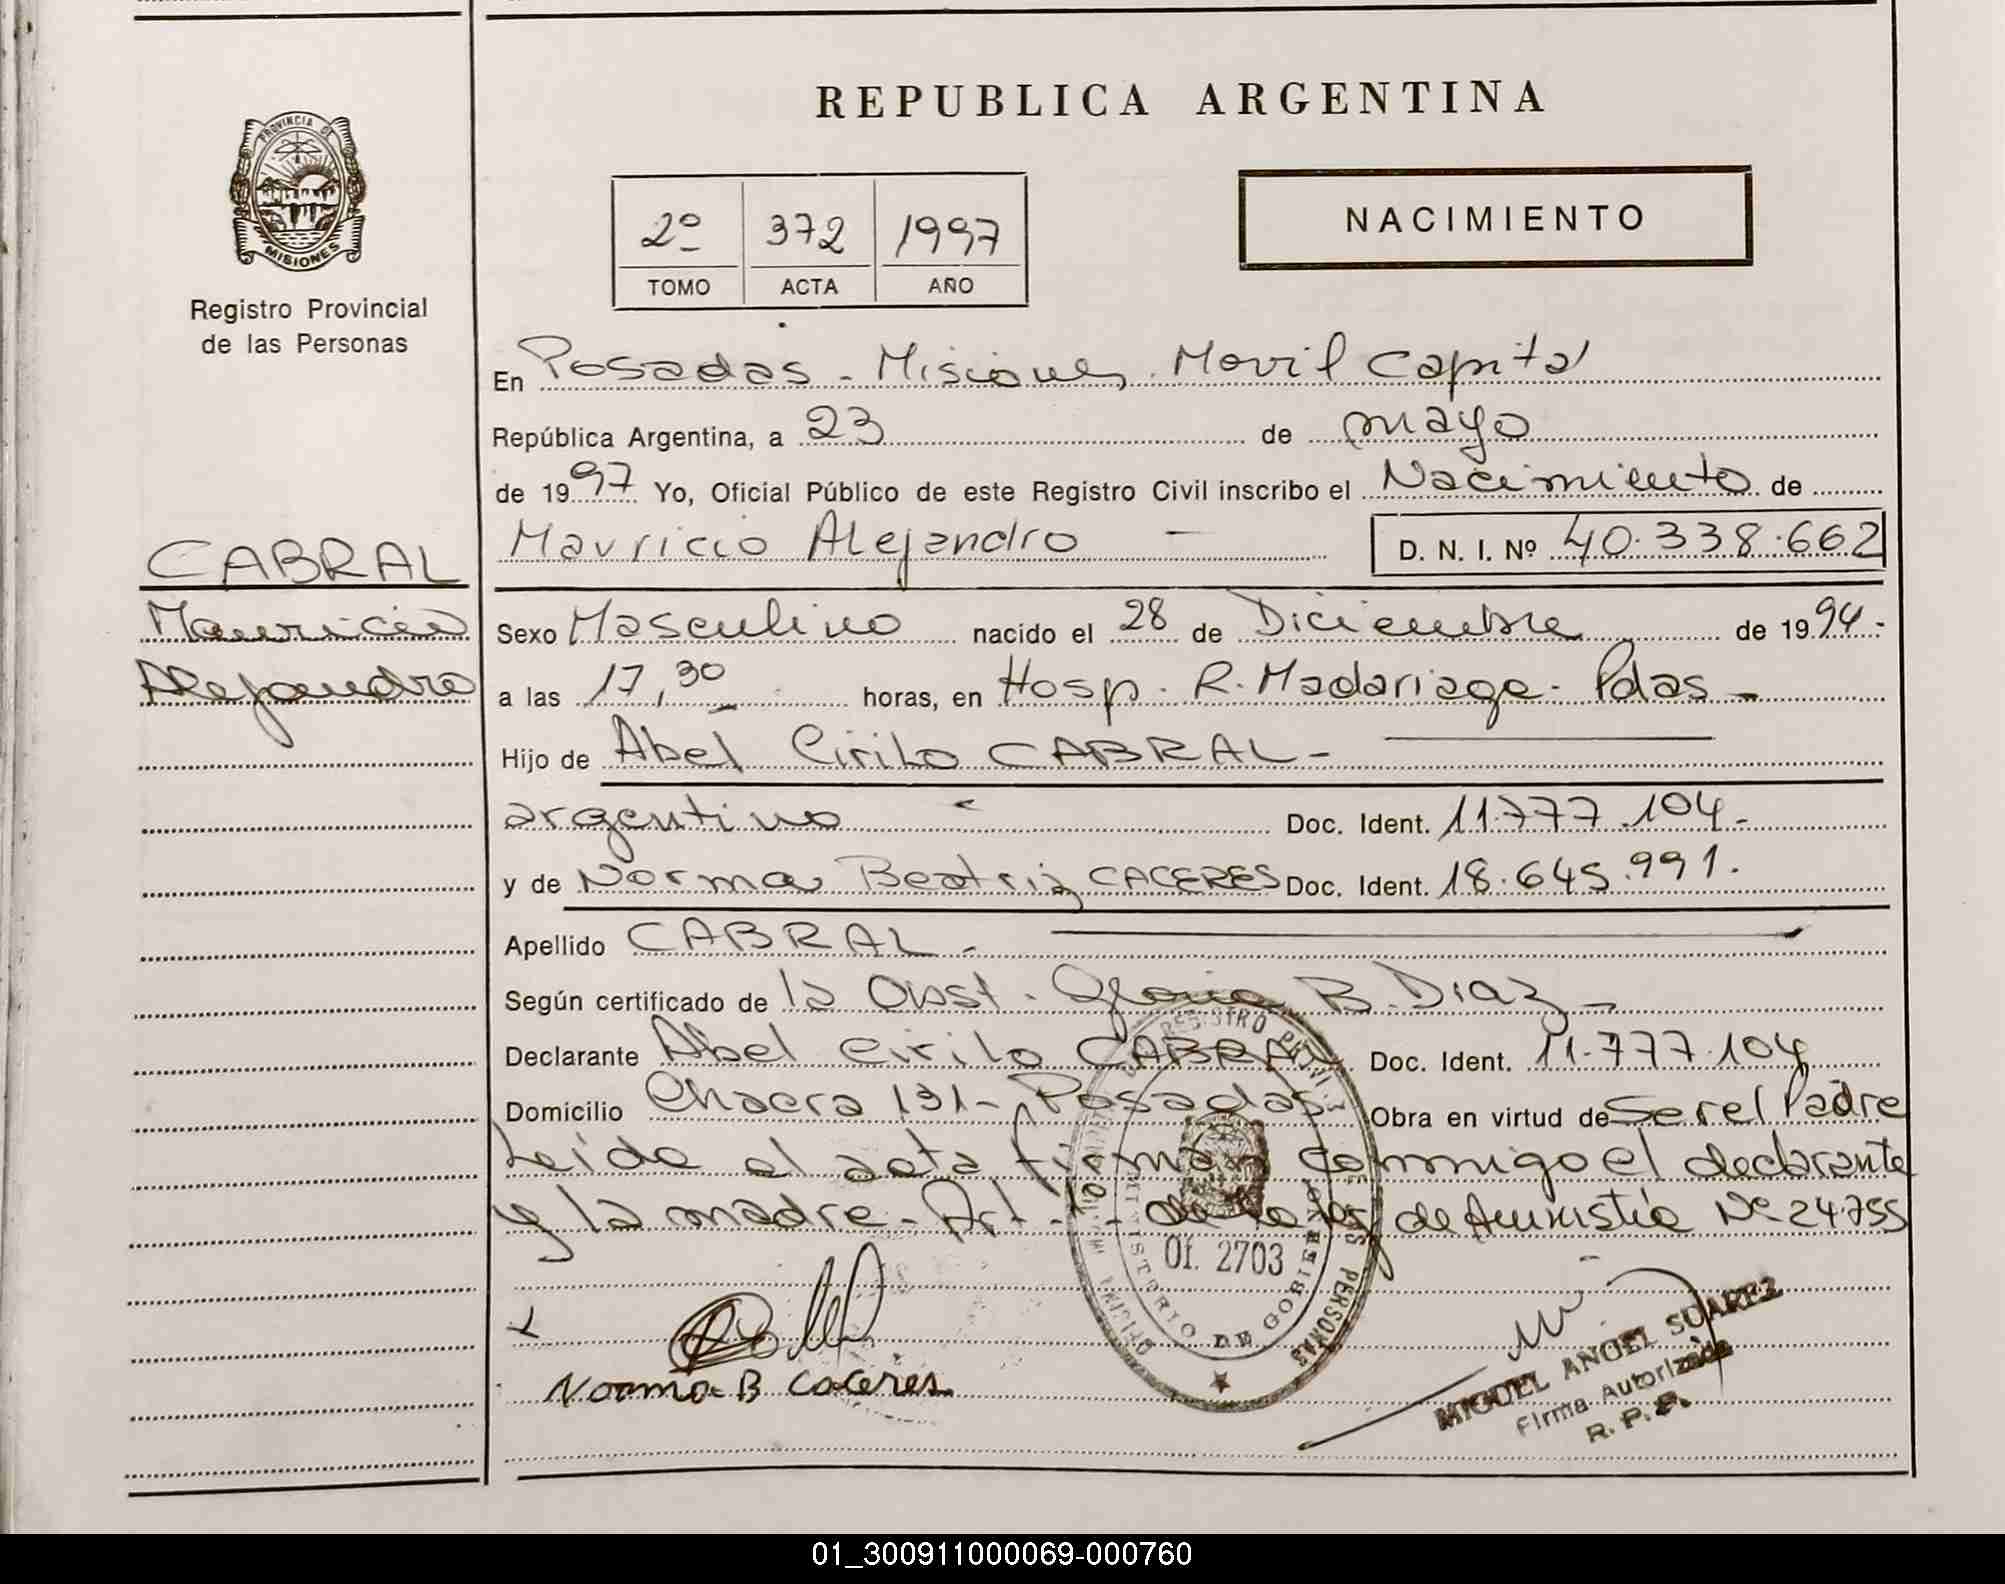 REPUBLICA ARGENTINA
PROVINCIA DE
MISIONES
Registro Provincial
de las Personas
2º 372 1997
TOMO ACTA AÑO
NACIMIENTO
CABRAL
Mauricio
Alejandro
En Posadas - Misiones, Movil Capital
República Argentina, a 23 de mayo
de 1997 Yo, Oficial Público de este Registro Civil inscribo el Nacimiento de
Mauricio Alejandro — D. N. I. Nº 40.338.662
Sexo Masculino nacido el 28 de Diciembre de 1994.-
a las 17,30 horas, en Hosp. R. Madariaga - Pdas -
Hijo de Abel Cirilo CABRAL -
argentino Doc. Ident. 11.777.104.-
y de Norma Beatriz CACERES Doc. Ident. 18.645.991.
Apellido CABRAL -
Según certificado de la Obst. Gloria B. Diaz -
Declarante Abel Cirilo CABRAL Doc. Ident. 11.777.104
Domicilio Chacra 131 - Posadas Obra en virtud de Ser el Padre
Leida el acta firman conmigo el declarante
y la madre - Art. 1º - de la ley de Amnistia Nº 24.755
REGISTRO PROVI
DE LAS PERSONAS
MINISTERIO DE GOBIERNO
Of. 2703
Norma B Caceres
MIGUEL ANGEL SUAREZ
Firma Autorizada
R. P. P.
01_300911000069-000760